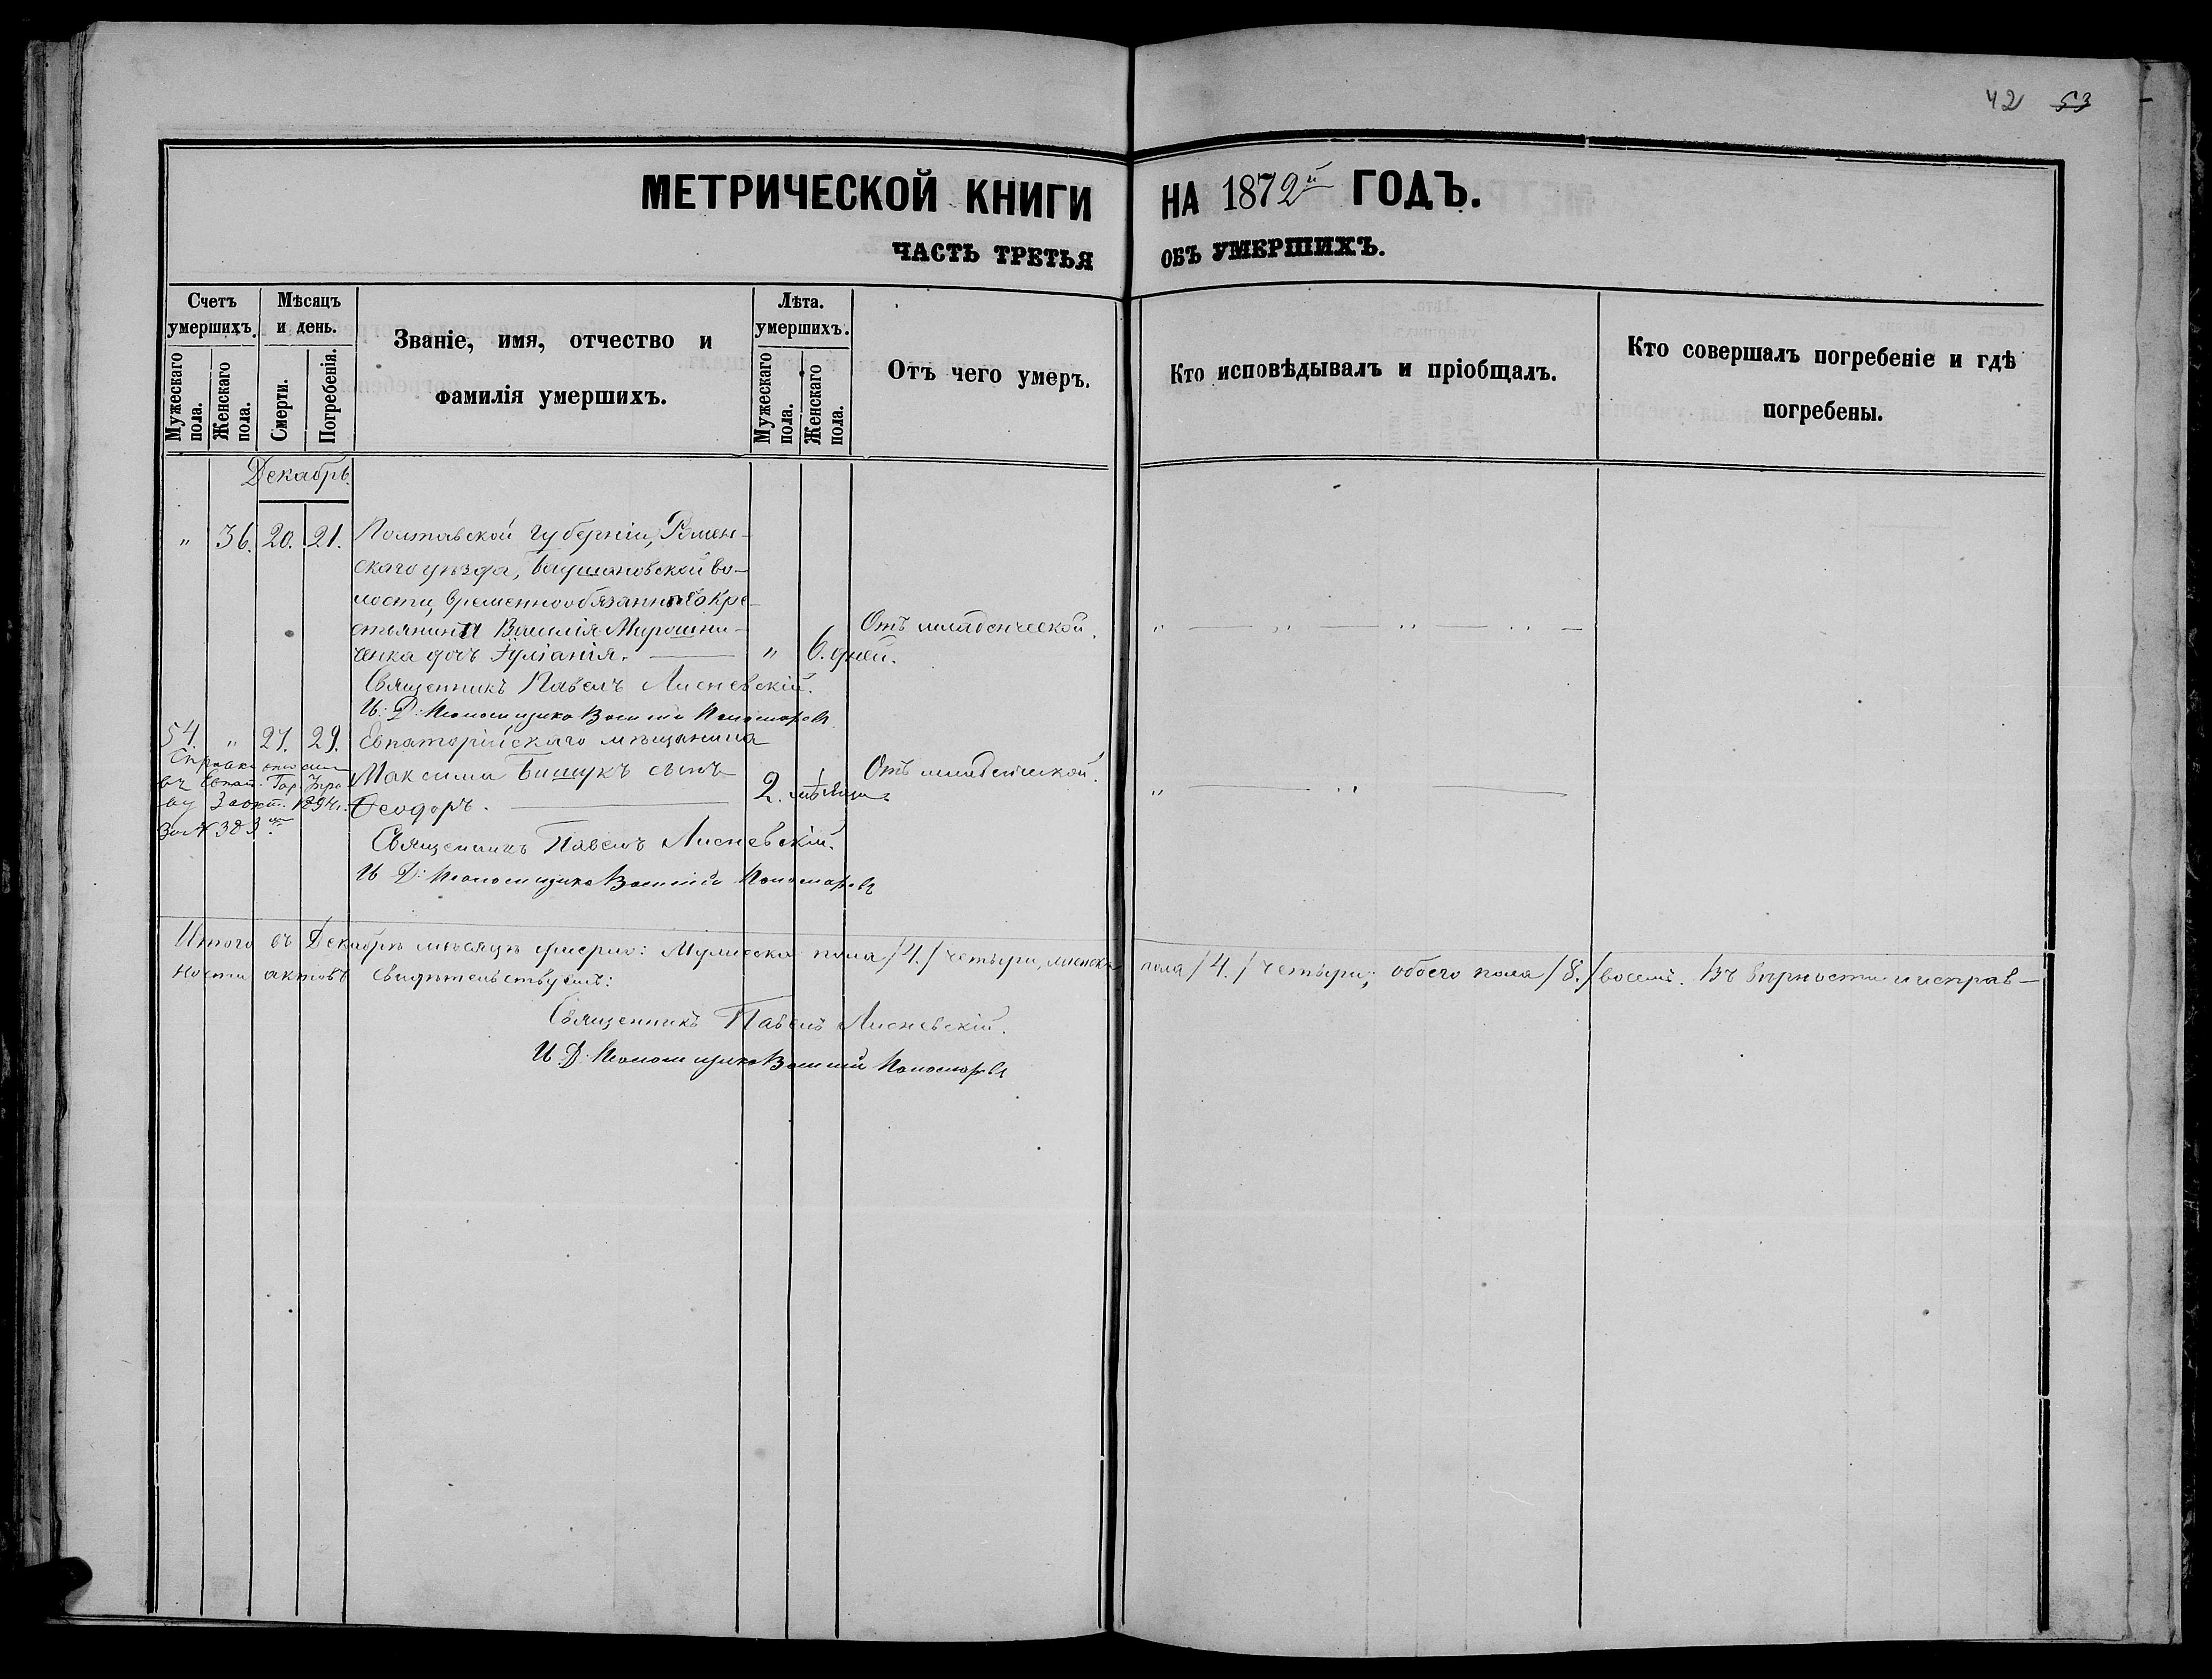 42 53
МЕТРИЧЕСКОЙ КНИГИ НА 1872й ГОДЪ.
ЧАСТЬ ТРЕТЬЯ ОБЪ УМЕРШИХЪ.
Счетъ умершихъ.
Мужескаго пола.
Женскаго пола.
Мѣсяцъ и день.
Смерти.
Погребенія.
Званіе, имя, отчество и
фамилія умершихъ.
Лѣта.
умершихъ.
Мужескаго пола.
Женскаго пола.
Отъ чего умеръ.
Кто исповѣдывалъ и пріобщалъ.
Кто совершалъ погребеніе и гдѣ
погребены.
Декабрь.
„ 36. 20. 21. Полтавской губерніи, Ромен-
скаго уѣзда, во-
лости, временнообязаннаго кре-
стьянина Василія Мирошни-
ченка дочь Іуліанія. „ 6. дней.
Отъ младенческой.
Священникъ Павелъ Лисневскій.
И. Д. Псаломщика Василій Пономаревъ
54. „ 27. 29. Евпаторійскаго мѣщанина
Максима Бищукъ сынъ
Ѳеодоръ. 2. мѣсяца
Отъ младенческой.
Справка
въ Евпат. Гор. Упра
ву 3 окт. 1894г.
за № 383
Священникъ Павелъ Лисневскій.
И Д: Псаломщика Василій Пономаревъ
Итого въ Декабрѣ мѣсяцѣ умерло: Мужеска пола /4./ четыри, женска пола /4./ четыри; обоего пола /8./ восемь. Въ вѣрности и исправ-
ности актовъ свидѣтельствуемъ:
Священникъ Павелъ Лисневскій.
И. Д. Псаломщика Василій Пономаревъ